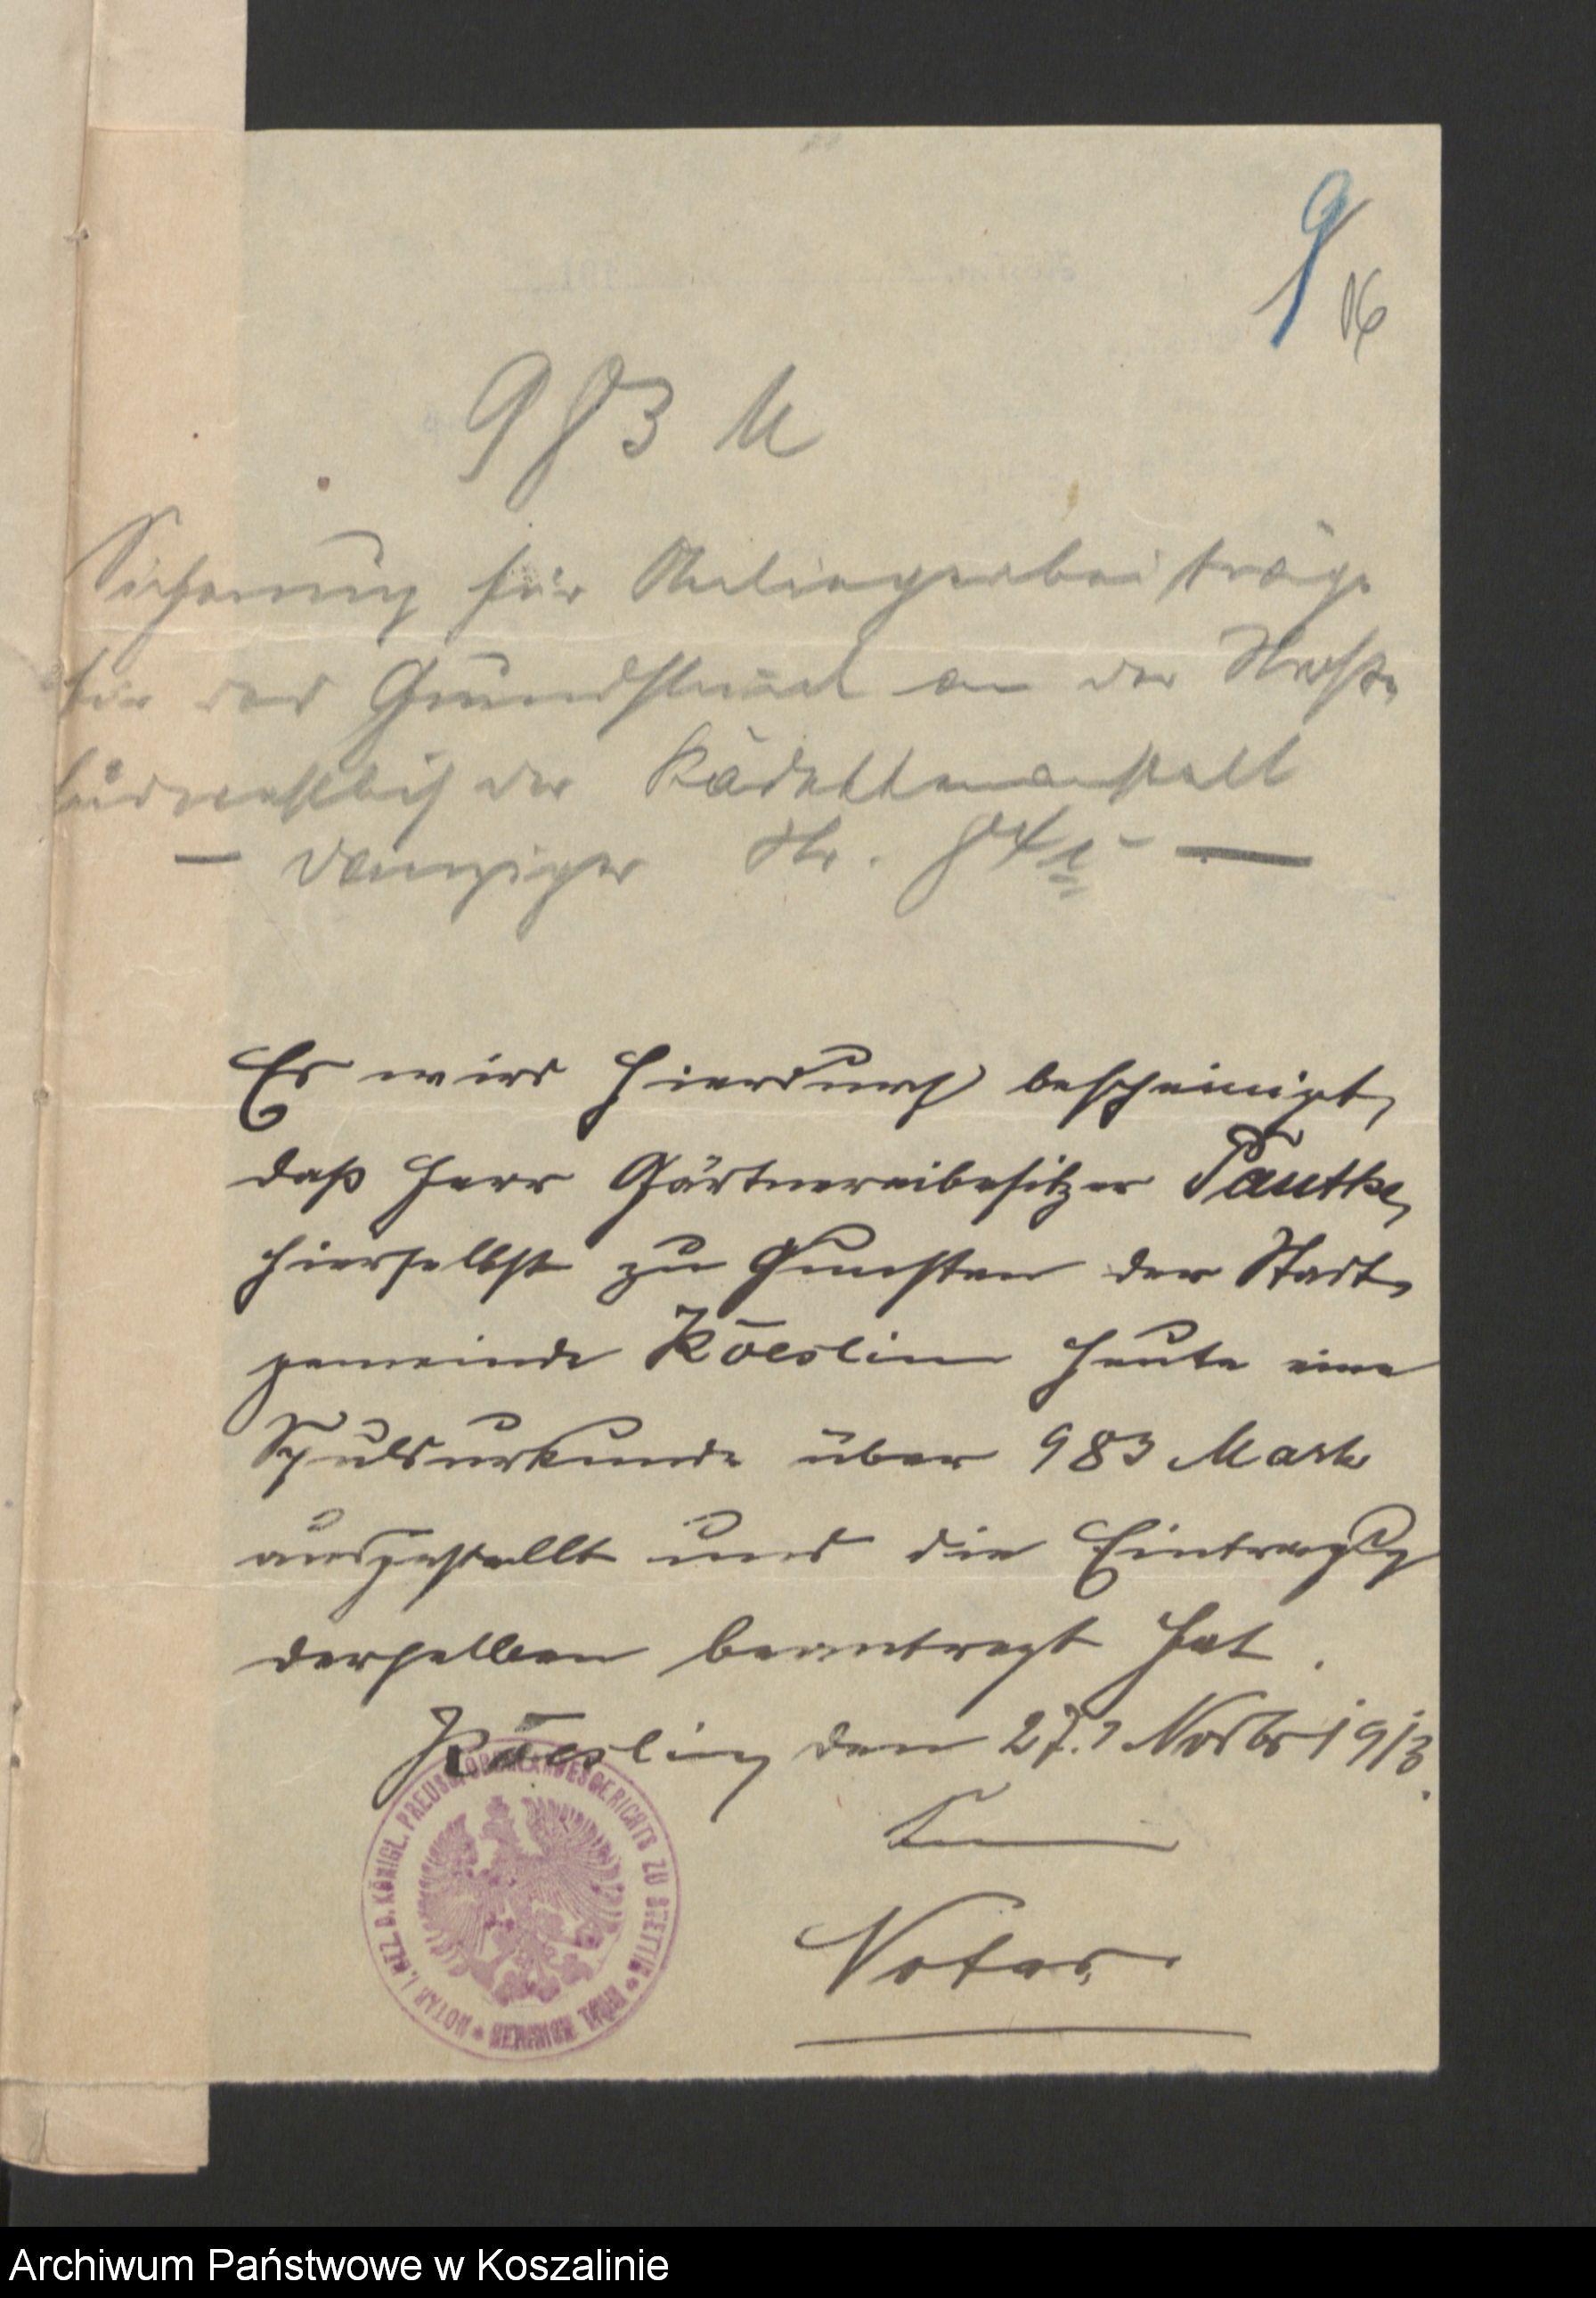 9
16
983 M
Sicherung für Anliegerbeiträge
für das Grundstück an der Straße
südwestlich der Kadettenanstalt
— Danziger Str. —
Es wird hierdurch bescheinigt,
daß Herr Gärtnereibesitzer Pautke,
hierselbst zu Gunsten der Stadt-
gemeinde Köeslin heute eine
Schuldurkunde über 983 Mark
ausgestellt und die Eintragg
derselben beantragt hat.
Köeslin, den 27. Novbr 1913.
Notar.
NOTAR I. BEZ. D. KÖNIGL. PREUSS. OBERLANDESGERICHTS ZU STETTIN *
Archiwum Państwowe w Koszalinie